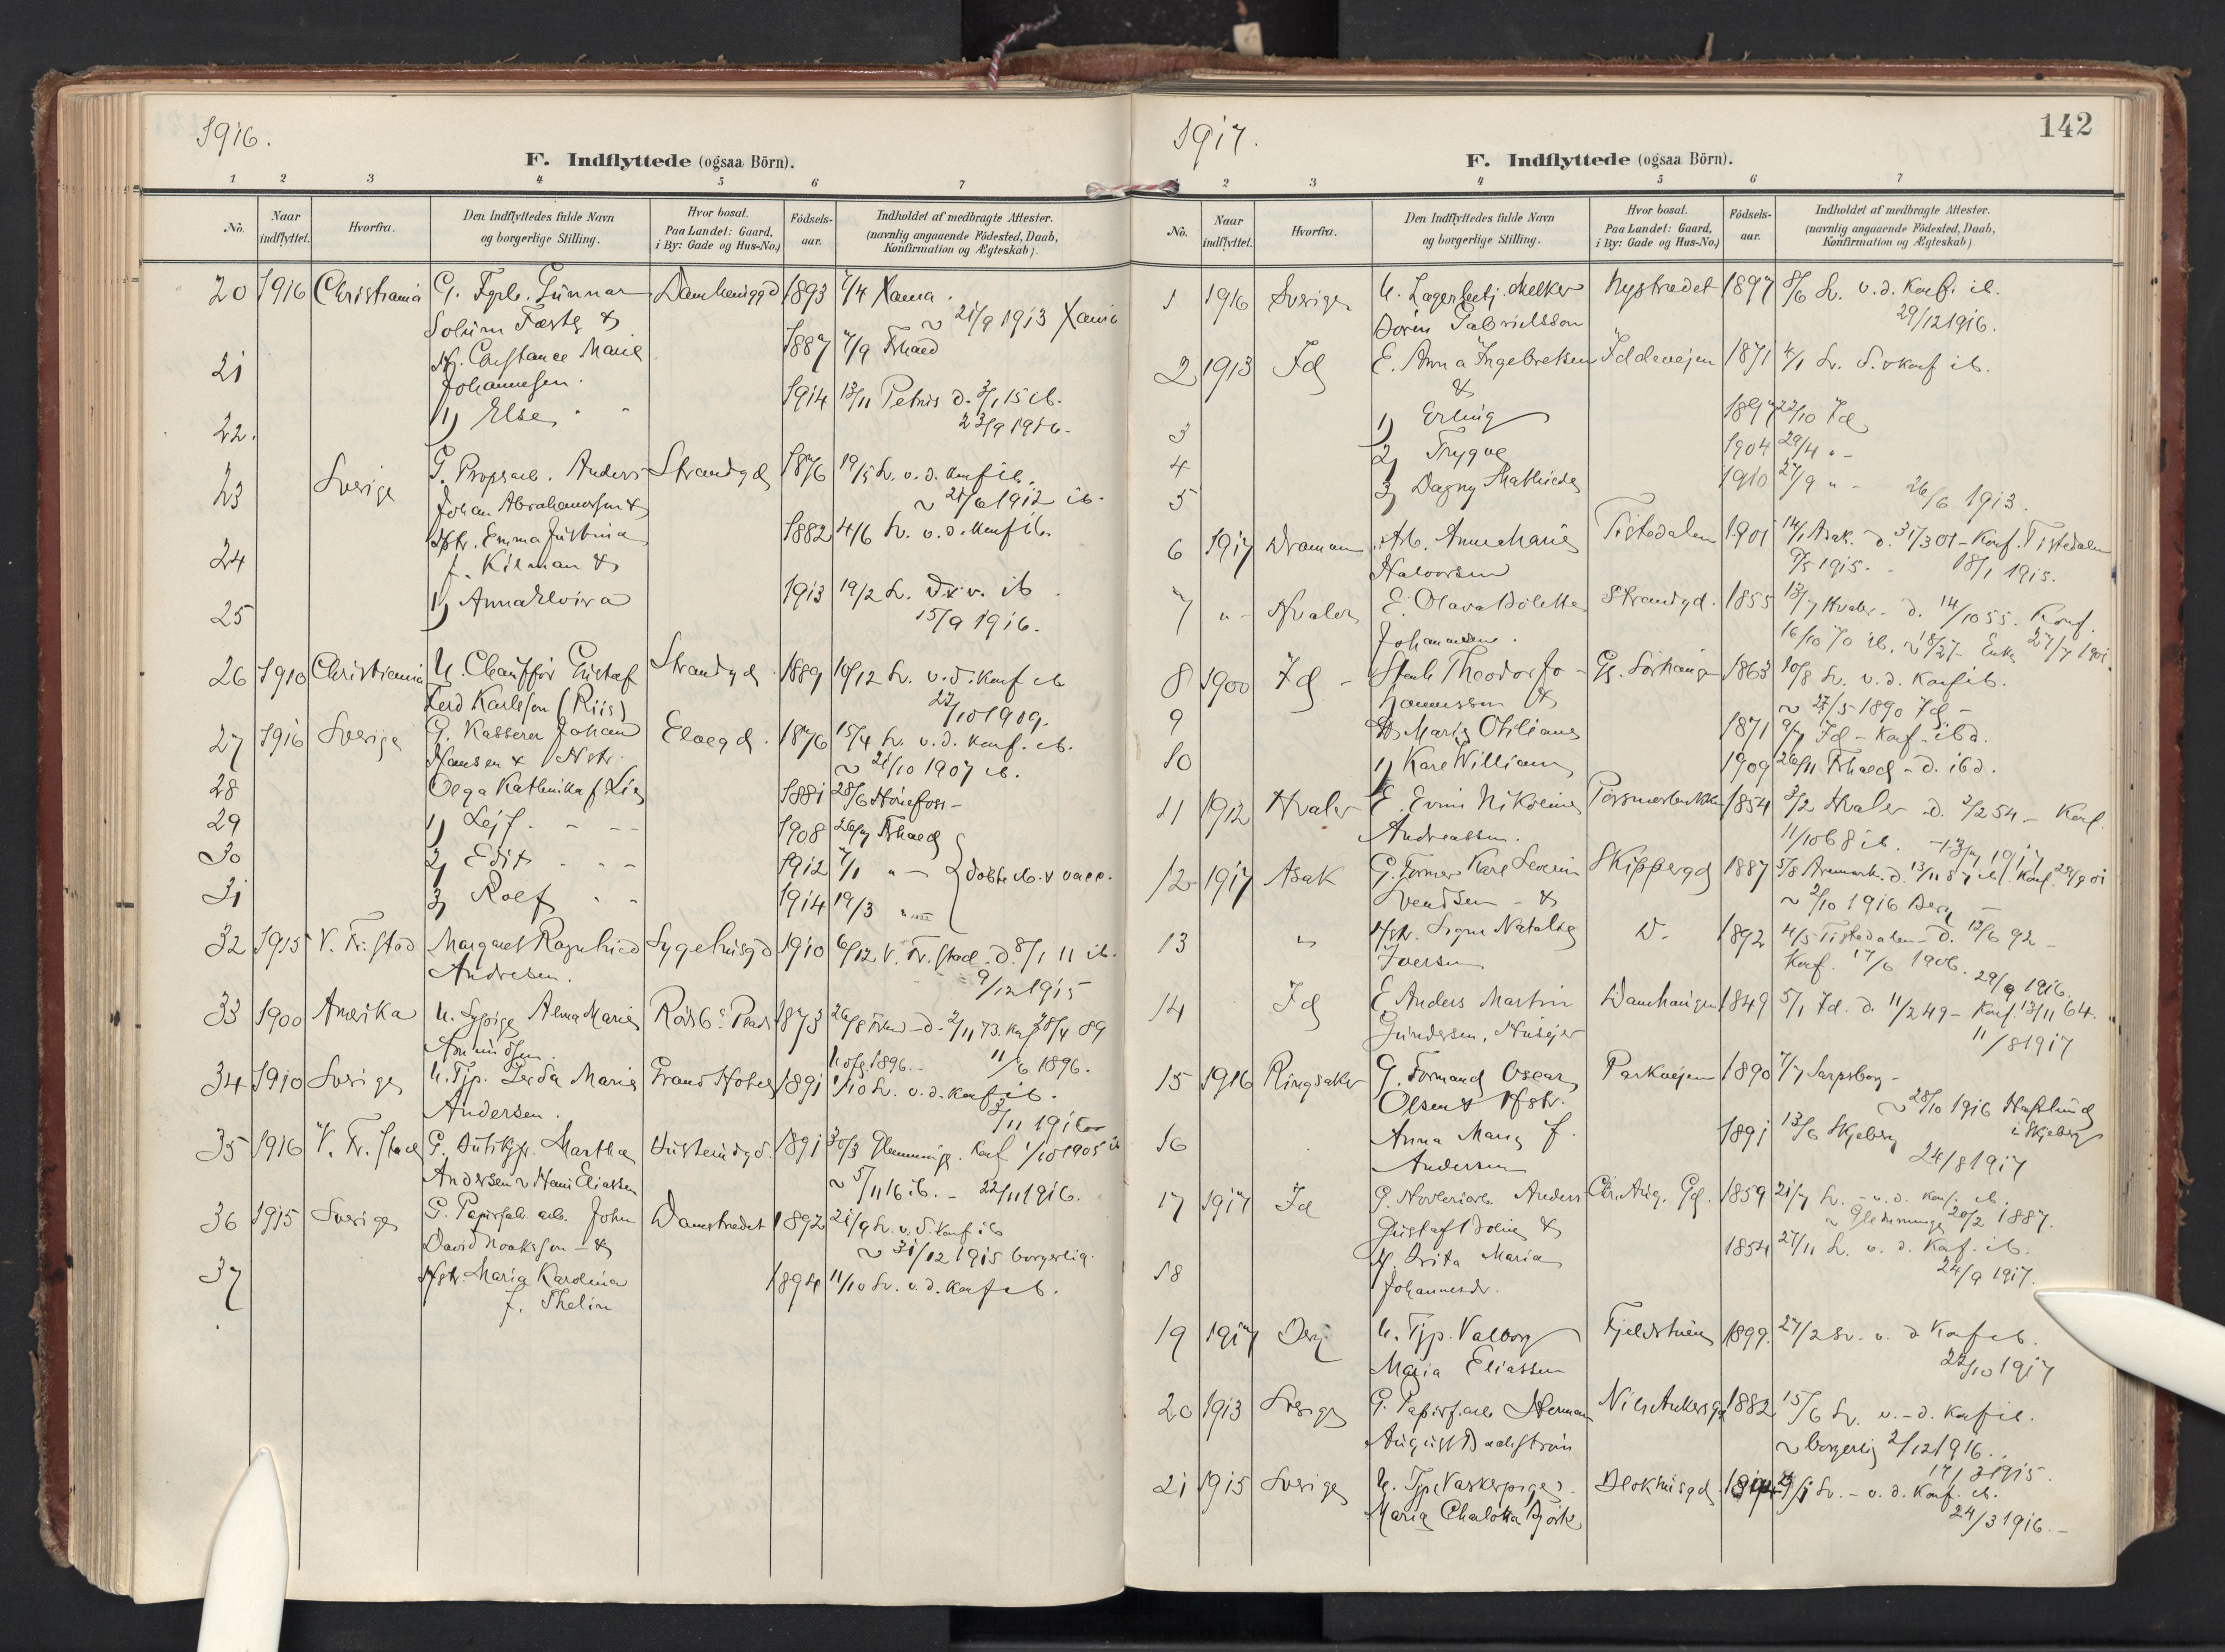 1916.
F. Indflyttede (ogsaa Börn).
1 2 3 4 5 6 7
No. Naar indflyttet. Hvorfra. Den Indflyttedes fulde Navn og borgerlige Stilling. Hvor bosat. Paa Landet: Gaard, i By: Gade og Hus-No.) Födsels-aar. Indholdet af medbragte Attester. (navnlig angaaende Födested, Daab, Konfirmation og Ægteskab).
20 1916 Christiania G. Gunnar 1893 7/4 Xania.
Solum & ~ 21/9 1913 Xania
21 Constance Marie 1887 7/9 Fr.hald
Johannesen.
22. 1) Else " " 1914 13/11 Petrus d. 3/1 15 ib.
23/9 1916.
23 Sverige G. Anders Strandgd 1876 19/5 Sv. v. d. konf ib.
Johan & ~ 21/6 1912 ib.
24 Hstr. Emma Justina 1882 4/6 Sv. v. d. konf ib
f. Kilman &
25 1) Anna Elvira 1913 19/2 Sv. d. & v. ib
15/9 1916.
26 1910 Christiania U. Chauffør Gustaf Strandgd 1889 10/12 Sv. v. d. konf ib
Ferd Karlsson (Riis) 22/10 1909.
27 1916 Sverige G. Kasserer Johan 1876 15/4 Sv. v. d. konf. ib.
Hansen & Hstr. ~ 21/10 1907 ib.
28 Olga Kathinka f. Lie 1881 28/6 Hönefoss
29 1) Leif - - - 1908 26/7 Fr.hald
30 2) Edit - - - 1912 7/1 " - döbte ib. & vacc.
31 3) Rolf " " 1914 19/3 "
32 1915 V. Fr.stad Margaret Ragnhild Sygehusgd 1910 6/12 V. Fr.stad. d. 8/1 11 ib.
Andresen. 9/12 1915
33 1900 Amerika U. Sypige Alma Marie 1873 26/8 d. 2/11 73. konf 28/4 89
1896. 11/6 1896.
34 1910 Sverige U. Tjp. Gerda Marie Grand Hotel 1891 1/10 Sv. v. d. konf ib.
Andersen. 3/11 1910
35 1916 V. Fr.stad G. Martha 1891 30/3 Glemminge. konf 1/10 1905 ib
Andersen ~ Hans Eliassen ~ 5/11 16 ib. - 22/11 1916.
36 1915 Sverige G. Papirfab. arb. John Damstrædet 1892 21/9 Sv. v. d. konf ib
David - & ~ 31/12 1915 borgerlig.
37 Hstr. Maria Karolina 1894 11/10 Sv. v. d. konf ib.
f. Thelin
142
1917.
F. Indflyttede (ogsaa Börn).
1 2 3 4 5 6 7
No. Naar indflyttet. Hvorfra. Den Indflyttedes fulde Navn og borgerlige Stilling. Hvor bosat. Paa Landet: Gaard, i By: Gade og Hus-No.) Födsels-aar. Indholdet af medbragte Attester. (navnlig angaaende Födested, Daab, Konfirmation og Ægteskab).
1 1916 Sverige U. Lagerbetj. Melker Nystrædet 1897 8/6 Sv. v. d. konf. ib.
Sören Gabrielsson 29/12 1916.
2 1913 Id E. Anna Ingebretsen Iddevejen 1871 4/1 Sv. d. & konf ib.
&
3 1) Erling 1897 22/10 Id
4 2) Trygve 1904 29/4 " -
5 3) Dagny Mathilde 1910 27/9 " - 26/6 1913.
6 1917 Drammen Arb. Anne Marie Tistedalen 1901 14/1 Asak. d. 31/3 01 - konf. Tistedalen
Halvorsen 9/5 1915. 18/1 1915.
7 " - Hvaler E. Olava Bolette Strandgd. 1855 13/7 Hvaler - d. 14/10 55. Konf.
Johannesen. 16/10 70 ib. Enke 27/7 1901.
8 1900 Id - Theodor Jo- 1863 10/8 Sv. v. d. konf ib.
hannessen & ~ 25/5 1890 Id -
9 H. Marie Otiliane 1871 9/7 Id - konf. ibd.
10 1) Kare William 1909 26/11 Fr.hald - d. ibd.
11 1912 Hvaler E. Nikoline 1854 3/2 Hvaler d. 2/2 54 - Konf.
Andreassen. 11/10 68 ib. 1917
12 1917 Asak G. Former Karl Severin Skippergd 1887 5/8 Aremark. d. 13/11 87 ib. konf. 29/9 01
Svendsen - & ~ 2/10 1916 Berg
13 " Hstr. Signe Natalie D. 1892 4/5 Tistedalen - d. 12/6 92 -
Iversen Konf. 17/6 1906. 29/9 1916.
14 Id E. Anders Martin Damhaugen 1849 5/1 Id. d. 11/2 49 - konf. 13/11 64.
Gundersen, Husejer 11/8 1917
15 1916 Ringsaker G. Formand Oscar Parkvejen 1890 7/7 Sarpsborg -
Olsen & Hstr. ~ 28/10 1916 Hafslund
i Skjeberg
16 Anna Marie f. 1891 13/6 Skjeberg
Andersen 24/8 1917
17 1917 Id G. Anders Chr. Aug. Gd. 1859 21/7 Sv. - v. d. konf. ib.
Gustaf Bolin & ~ Glemminge 20/2 1887.
18 H. Brita Maria 1854 27/11 Sv. v. d. konf. ib.
Johannesdr. 24/9 1917.
19 1917 Berg U. Tjp. Valborg 1899. 27/2 Sv. v. d konf ib.
Maria Eliassen 22/10 1917
20 1913 Sverige G. Papirf.arb Herman Nils Ankersgd 1882 15/6 Sv. v. - d. konf ib.
August ~ borgerlig 2/12 1916.
17/3 1915.
21 1915 Sverige U. Tjp. Sv. - v. d. konf. ib.
Maria Björk 24/3 1916. -